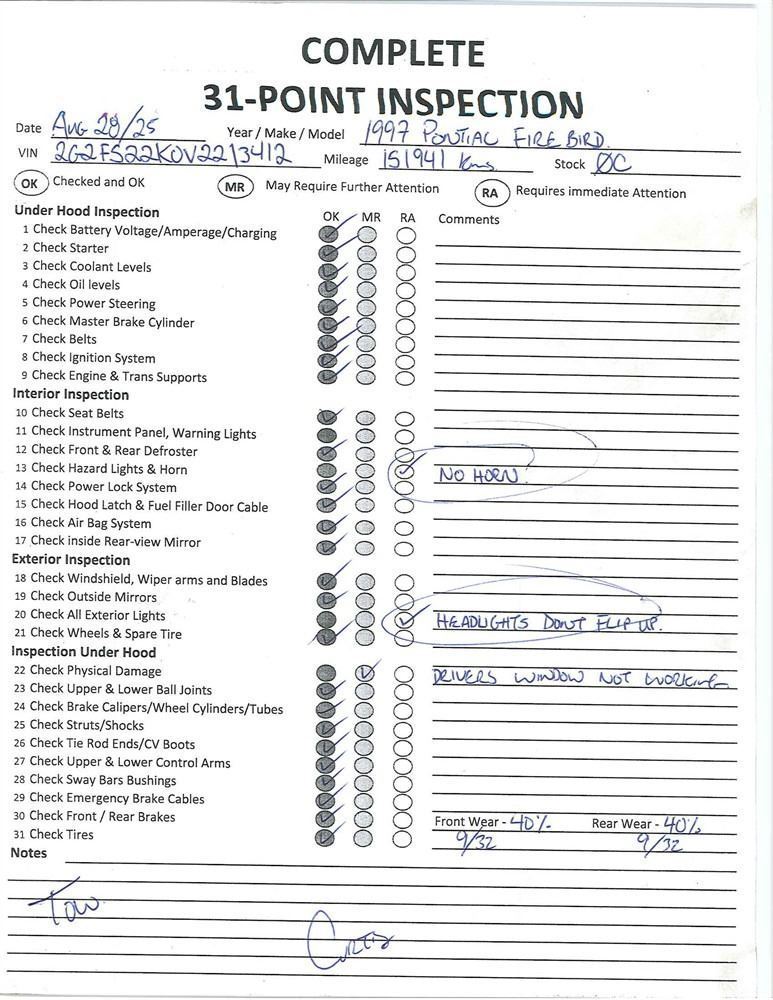 COMPLETE
31-POINT INSPECTION
Date AUG 28/25 Year / Make / Model 1997 PONTIAC FIREBIRD.
VIN 2G2FS22K0V2213412 Mileage 151941 Kms Stock ØC
OK Checked and OK MR May Require Further Attention RA Requires immediate Attention
Under Hood Inspection OK MR RA Comments
1 Check Battery Voltage/Amperage/Charging
2 Check Starter
3 Check Coolant Levels
4 Check Oil levels
5 Check Power Steering
6 Check Master Brake Cylinder
7 Check Belts
8 Check Ignition System
9 Check Engine & Trans Supports
Interior Inspection
10 Check Seat Belts
11 Check Instrument Panel, Warning Lights
12 Check Front & Rear Defroster
13 Check Hazard Lights & Horn NO HORN.
14 Check Power Lock System
15 Check Hood Latch & Fuel Filler Door Cable
16 Check Air Bag System
17 Check inside Rear-view Mirror
Exterior Inspection
18 Check Windshield, Wiper arms and Blades
19 Check Outside Mirrors
20 Check All Exterior Lights HEADLIGHTS DONT FLIP UP.
21 Check Wheels & Spare Tire
Inspection Under Hood
22 Check Physical Damage DRIVERS WINDOW NOT WORKING
23 Check Upper & Lower Ball Joints
24 Check Brake Calipers/Wheel Cylinders/Tubes
25 Check Struts/Shocks
26 Check Tie Rod Ends/CV Boots
27 Check Upper & Lower Control Arms
28 Check Sway Bars Bushings
29 Check Emergency Brake Cables
30 Check Front / Rear Brakes Front Wear - 40% Rear Wear - 40%
31 Check Tires 9/32 9/32
Notes
Tow
CURTIS